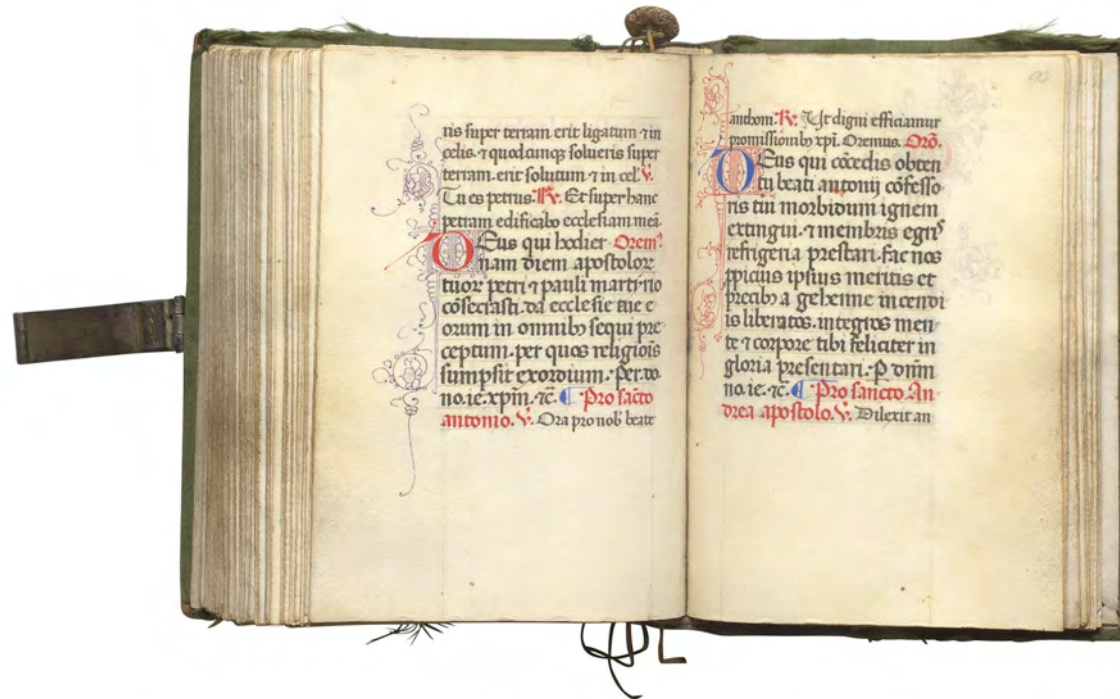 ris super terram erit ligatum ⁊ in
celis. ⁊ quodcunqꝫ solueris super
terram. erit solutum ⁊ in cel̕ V̕.
Tu es petrus. R̕. Et super hanc
petram edificabo ecclesiam meā.
DEus qui hodier Orem᷒
nam diem apostoloꝝ
tuoꝝ petri ⁊ pauli martirio
cōsecrasti. da ecclesie tue e
orum in omnibꝫ sequi pre
ceptum. per quos religiōis
sumpsit exordium. Per do
no. ie. xp̄m. ⁊c̄. ¶ Pro sācto
antonio. V̕. Ora pro nob̕ beate
anthoni. R̕. Ut digni efficiamur
promissionibꝫ xp̄i. Oremus. Orō.
DEus qui cōcedis obten
tu beati antonij cōfesso
ris tui morbidum ignem
extingui. ⁊ membris egri᷒
refrigeria prestari. fac nos
ꝓpicius ipsius meritis et
precibꝫ a gehenne incendi
is liberatos. integros men
te ⁊ corpore tibi feliciter in
gloria presentari. P̱ dn̄m
no. ie. ⁊c̄. ¶ Pro sancto An
drea apostolo. V̕. Dilexit an